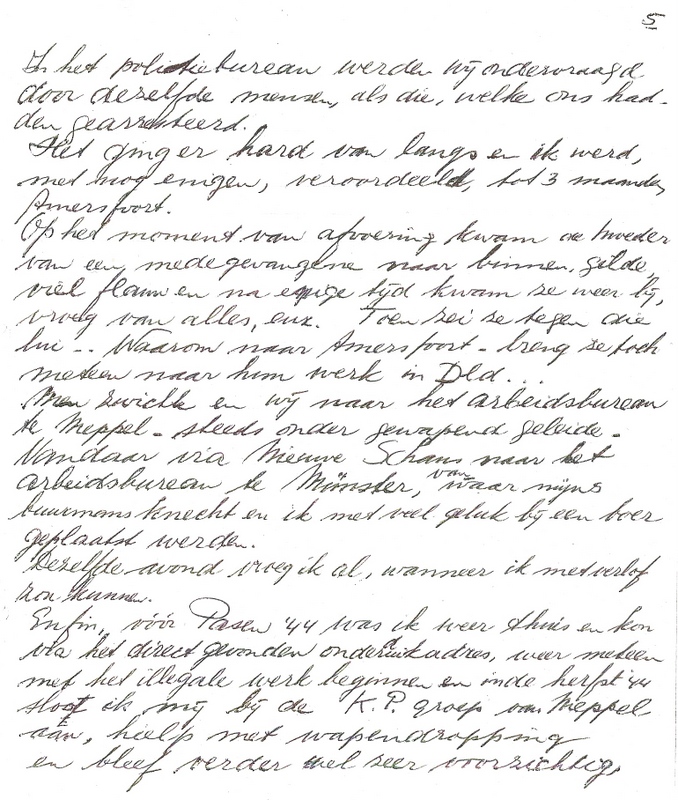 5
In het politiebureau werden wij ondervraagd
door dezelfde mensen, als die, welke ons had-
den gearresteerd.
Het ging er hard van langs en ik werd,
met nog enigen, veroordeeld, tot 3 maanden
Amersfoort.
Op het moment van afvoering kwam de moeder
van een medegevangene naar binnen, gilde,
viel flauw en na enige tijd kwam ze weer bij,
vroeg van alles, enz. Toen zei ze tegen die
lui -- Waarom naar Amersfoort - breng ze toch
meteen naar hun werk in Dld...
Men zwichtte en wij naar het arbeidsbureau
te Meppel - steeds onder gewapend geleide -
Vandaar via Nieuwe Schans naar het
arbeidsbureau te Münster, van waar mijns
buurmans knecht en ik met veel geluk bij een boer
geplaatst werden.
Dezelfde avond vroeg ik al, wanneer ik met verlof
zou kunnen.
Enfin, vóór Pasen '44 was ik weer thuis en kon
via het direct gevonden onderduikadres, weer meteen
met het illegale werk beginnen en in de herfst '44
sloot ik mij bij de K.P. groep van Meppel
aan, hielp met wapendropping
en bleef verder wel zeer voorzichtig.